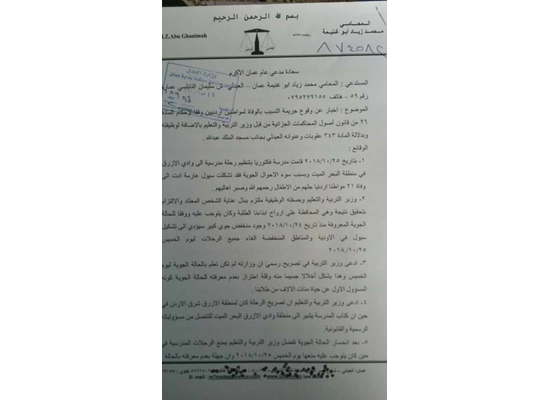 بسم الله الرحمن الرحيم
المحامي
محمد زياد أبو غنيمة
Z.Abu Ghanimah
سعادة مدعي عام عمان الأكرم
المستدعي : المحامي محمد زياد ابو غنيمة عمان – العبدلي- ش سليمان النابلسي عمارة
رقم ٥٩ – هاتف ٠٧٩٥٢٧٩١٥٥
الموضوع : اخبار عن وقوع جريمة التسبب بالوفاة لمواطنين اردنيين وفقا لاحكام المادة
٢٦ من قانون أصول المحاكمات الجزائية من قبل وزير التربية والتعليم بالاضافة لوظيفته
وبدلالة المادة ٣٤٣ عقوبات وعنوانه العبدلي بجانب مسجد الملك عبدالله .
الوقائع :
١- بتاريخ ٢٠١٨/١٠/٢٥ قامت مدرسة فكتوريا بتنظيم رحلة مدرسية الى وادي الازرق
في منطقة البحر الميت وبسبب سوء الاحوال الجوية فقد تشكلت سيول عارمة ادت الى
وفاة ٢١ مواطنا اردنيا جلهم من الاطفال رحمهم الله وصبر اهاليهم .
٢- وزير التربية والتعليم وبصفته الوظيفية ملتزم ببذل عناية الشخص المعتاد والالتزام
بتحقيق نتيجة وهي المحافظة على ارواح ابناءنا الطلبة وكان يتوجب عليه ووفقا للحالة
الجوية المعروفة منذ تاريخ ٢٠١٨/١٠/٢٤ وجود منخفض جوي كبير سيؤدي الى تشكيل
سيول في الاودية والمناطق المنخفضة الغاء جميع الرحلات ليوم الخميس
٢٠١٨/١٠/٢٥
٣- ادعى وزير التربية في تصريح رسمي ان وزارته لم تكن تعلم بالحالة الجوية ليوم
الخميس وهذا يشكل اخلالا جسيما منه وقلة احتراز بعدم معرفته للحالة الجوية كونه
المسؤول الاول عن حياة مئات الالاف من طلابنا .
٤- ادعى وزير التربية والتعليم ان تصريح الرحلة كان لمنطقة الازرق شرق الاردن في
حين ان كتاب المدرسة يشير الى منطقة وادي الازرق البحر الميت للتنصل من مسؤولياته
الرسمية والقانونية.
٥- بعد انحسار الحالة الجوية تفضل وزير التربية والتعليم بمنع الرحلات المدرسية في
حين كان يتوجب عليه منعها يوم الخميس ٢٠١٨/١٠/٢٥ وان جهلة بعدم معرفته بالحالة